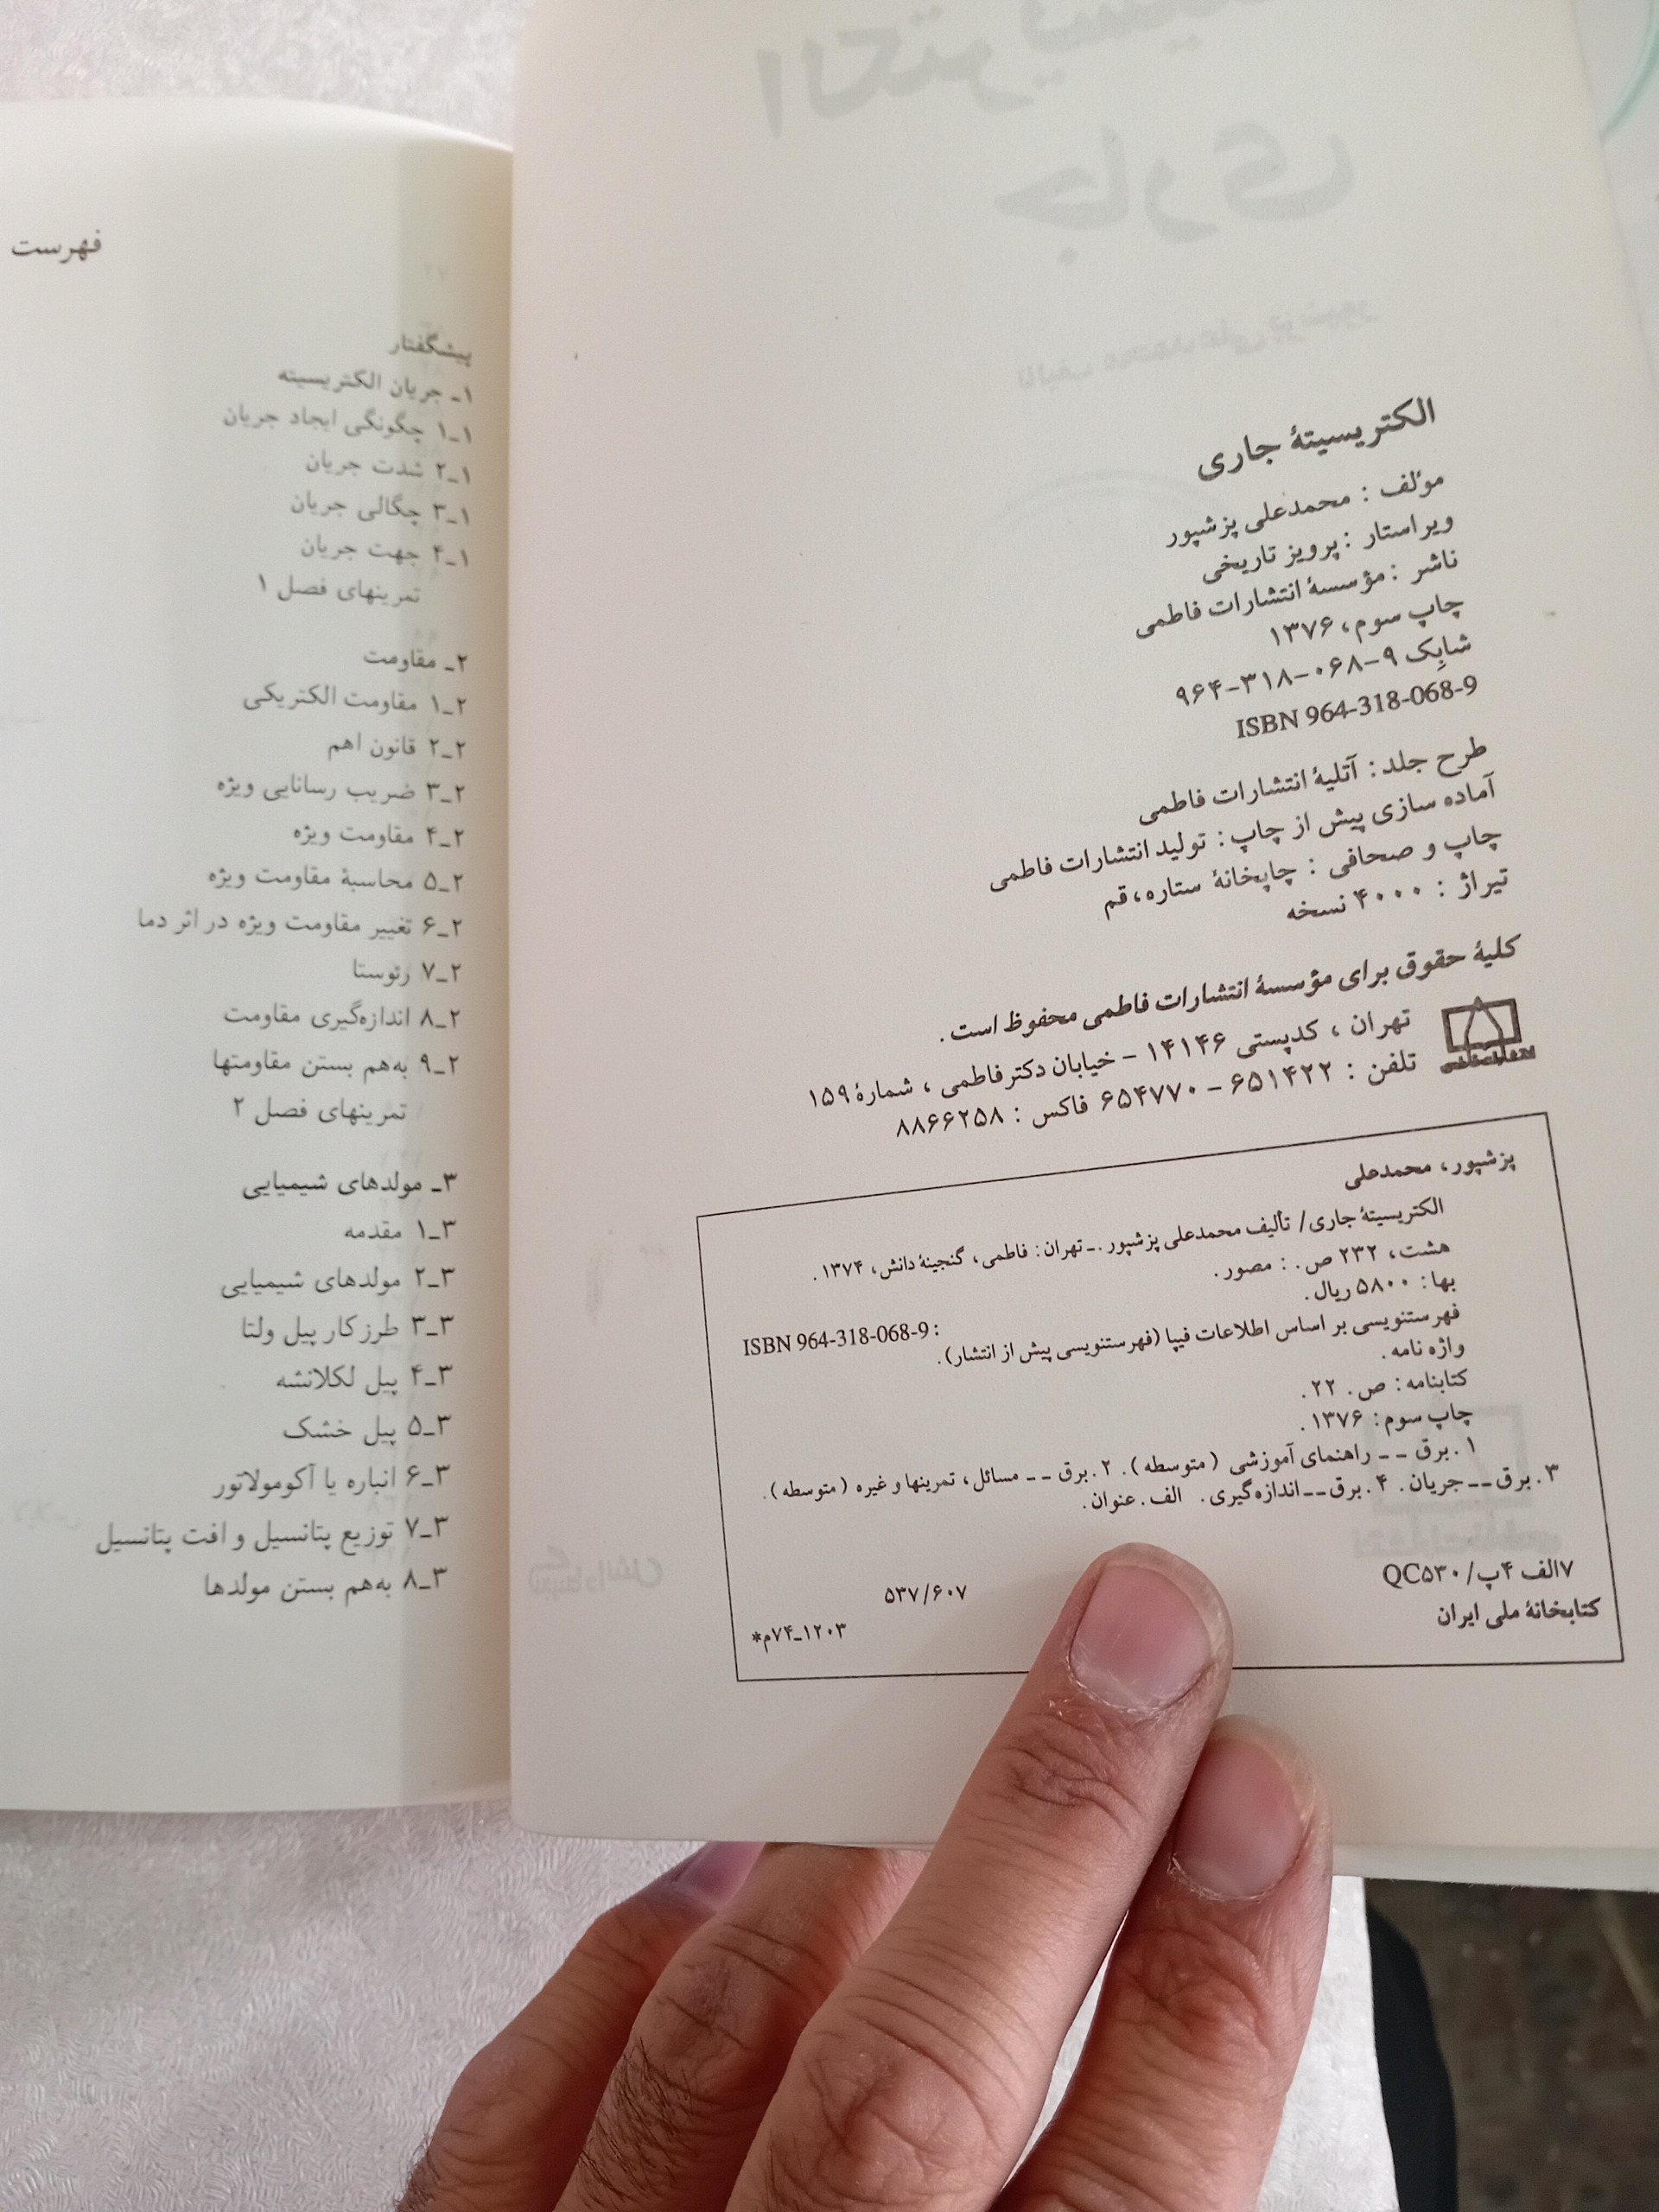 الکتریسیتهٔ جاری
مؤلف : محمدعلی پزشپور
ویراستار : پرویز تاریخی
ناشر : مؤسسهٔ انتشارات فاطمی
چاپ سوم، ۱۳۷۶
شابِک ۹-۰۶۸-۳۱۸-۹۶۴
ISBN 964-318-068-9
طرح جلد : آتلیهٔ انتشارات فاطمی
آماده سازی پیش از چاپ : تولید انتشارات فاطمی
چاپ و صحافی : چاپخانهٔ ستاره، قم
تیراژ : ۴۰۰۰ نسخه
کلیهٔ حقوق برای مؤسسهٔ انتشارات فاطمی محفوظ است.
تهران ، کدپستی ۱۴۱۴۶ - خیابان دکتر فاطمی ، شمارهٔ ۱۵۹
تلفن : ۶۵۱۴۲۲ - ۶۵۴۷۷۰ فاکس : ۸۸۶۶۲۵۸
انتشارات فاطمی
پزشپور، محمدعلی
الکتریسیتهٔ جاری/ تألیف محمدعلی پزشپور._تهران: فاطمی، گنجینهٔ دانش، ۱۳۷۴.
هشت، ۲۳۲ ص. : مصور.
بها: ۵۸۰۰ ریال.
ISBN 964-318-068-9 :
فهرستنویسی بر اساس اطلاعات فیپا (فهرستنویسی پیش از انتشار).
واژه نامه.
کتابنامه: ص. ۲۲.
چاپ سوم: ۱۳۷۶.
۱.برق -- راهنمای آموزشی (متوسطه). ۲.برق -- مسائل، تمرینها و غیره (متوسطه).
۳.برق--جریان. ۴.برق--اندازه‌گیری. الف.عنوان.
۷الف ۴پ/QC۵۳۰
۵۳۷/۶۰۷
کتابخانهٔ ملی ایران
۱۲۰۳_۷۴م*
فهرست
پیشگفتار
۱_ جریان الکتریسیته
۱_۱ چگونگی ایجاد جریان
۱_۲ شدت جریان
۱_۳ چگالی جریان
۱_۴ جهت جریان
تمرینهای فصل ۱
۲_ مقاومت
۲_۱ مقاومت الکتریکی
۲_۲ قانون اهم
۲_۳ ضریب رسانایی ویژه
۲_۴ مقاومت ویژه
۲_۵ محاسبهٔ مقاومت ویژه
۲_۶ تغییر مقاومت ویژه در اثر دما
۲_۷ رئوستا
۲_۸ اندازه‌گیری مقاومت
۲_۹ به‌هم بستن مقاومتها
تمرینهای فصل ۲
۳_ مولدهای شیمیایی
۳_۱ مقدمه
۳_۲ مولدهای شیمیایی
۳_۳ طرز کار پیل ولتا
۳_۴ پیل لکلانشه
۳_۵ پیل خشک
۳_۶ انباره یا آکومولاتور
۳_۷ توزیع پتانسیل و افت پتانسیل
۳_۸ به‌هم بستن مولدها